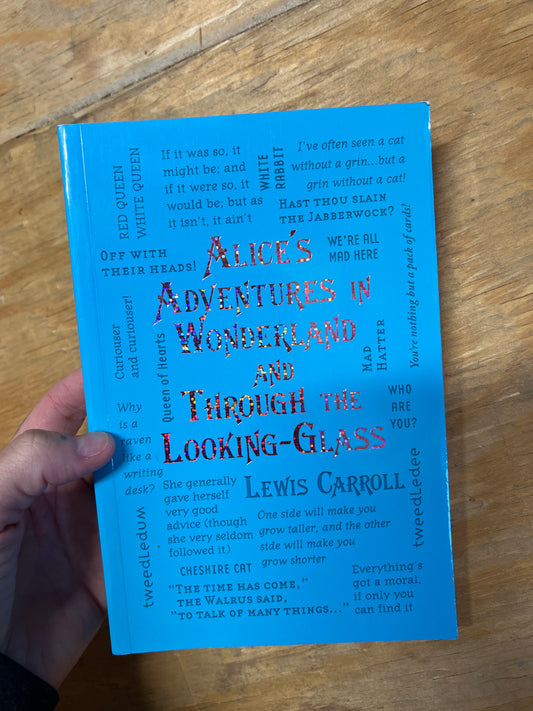 RED QUEEN
WHITE QUEEN
If it was so, it
might be; and
if it were so, it
would be; but as
it isn't, it ain't
WHITE
RABBIT
I've often seen a cat
without a grin...but a
grin without a cat!
HAST THOU SLAIN
THE JABBERWOCK?
OFF WITH
THEIR HEADS!
WE'RE ALL
MAD HERE
ALICE'S
ADVENTURES IN
WONDERLAND
AND
THROUGH THE
LOOKING-GLASS
You're nothing but a pack of cards!
Curiouser
and curiouser!
Queen of Hearts
MAD
HATTER
Why
is a
raven
like a
writing
desk?
WHO
ARE
YOU?
LEWIS CARROLL
She generally
gave herself
very good
advice (though
she very seldom
followed it)
One side will make you
grow taller, and the other
side will make you
grow shorter
tweedledum
tweedledee
CHESHIRE CAT
"THE TIME HAS COME,"
THE WALRUS SAID,
"TO TALK OF MANY THINGS..."
Everything's
got a moral,
if only you
can find it